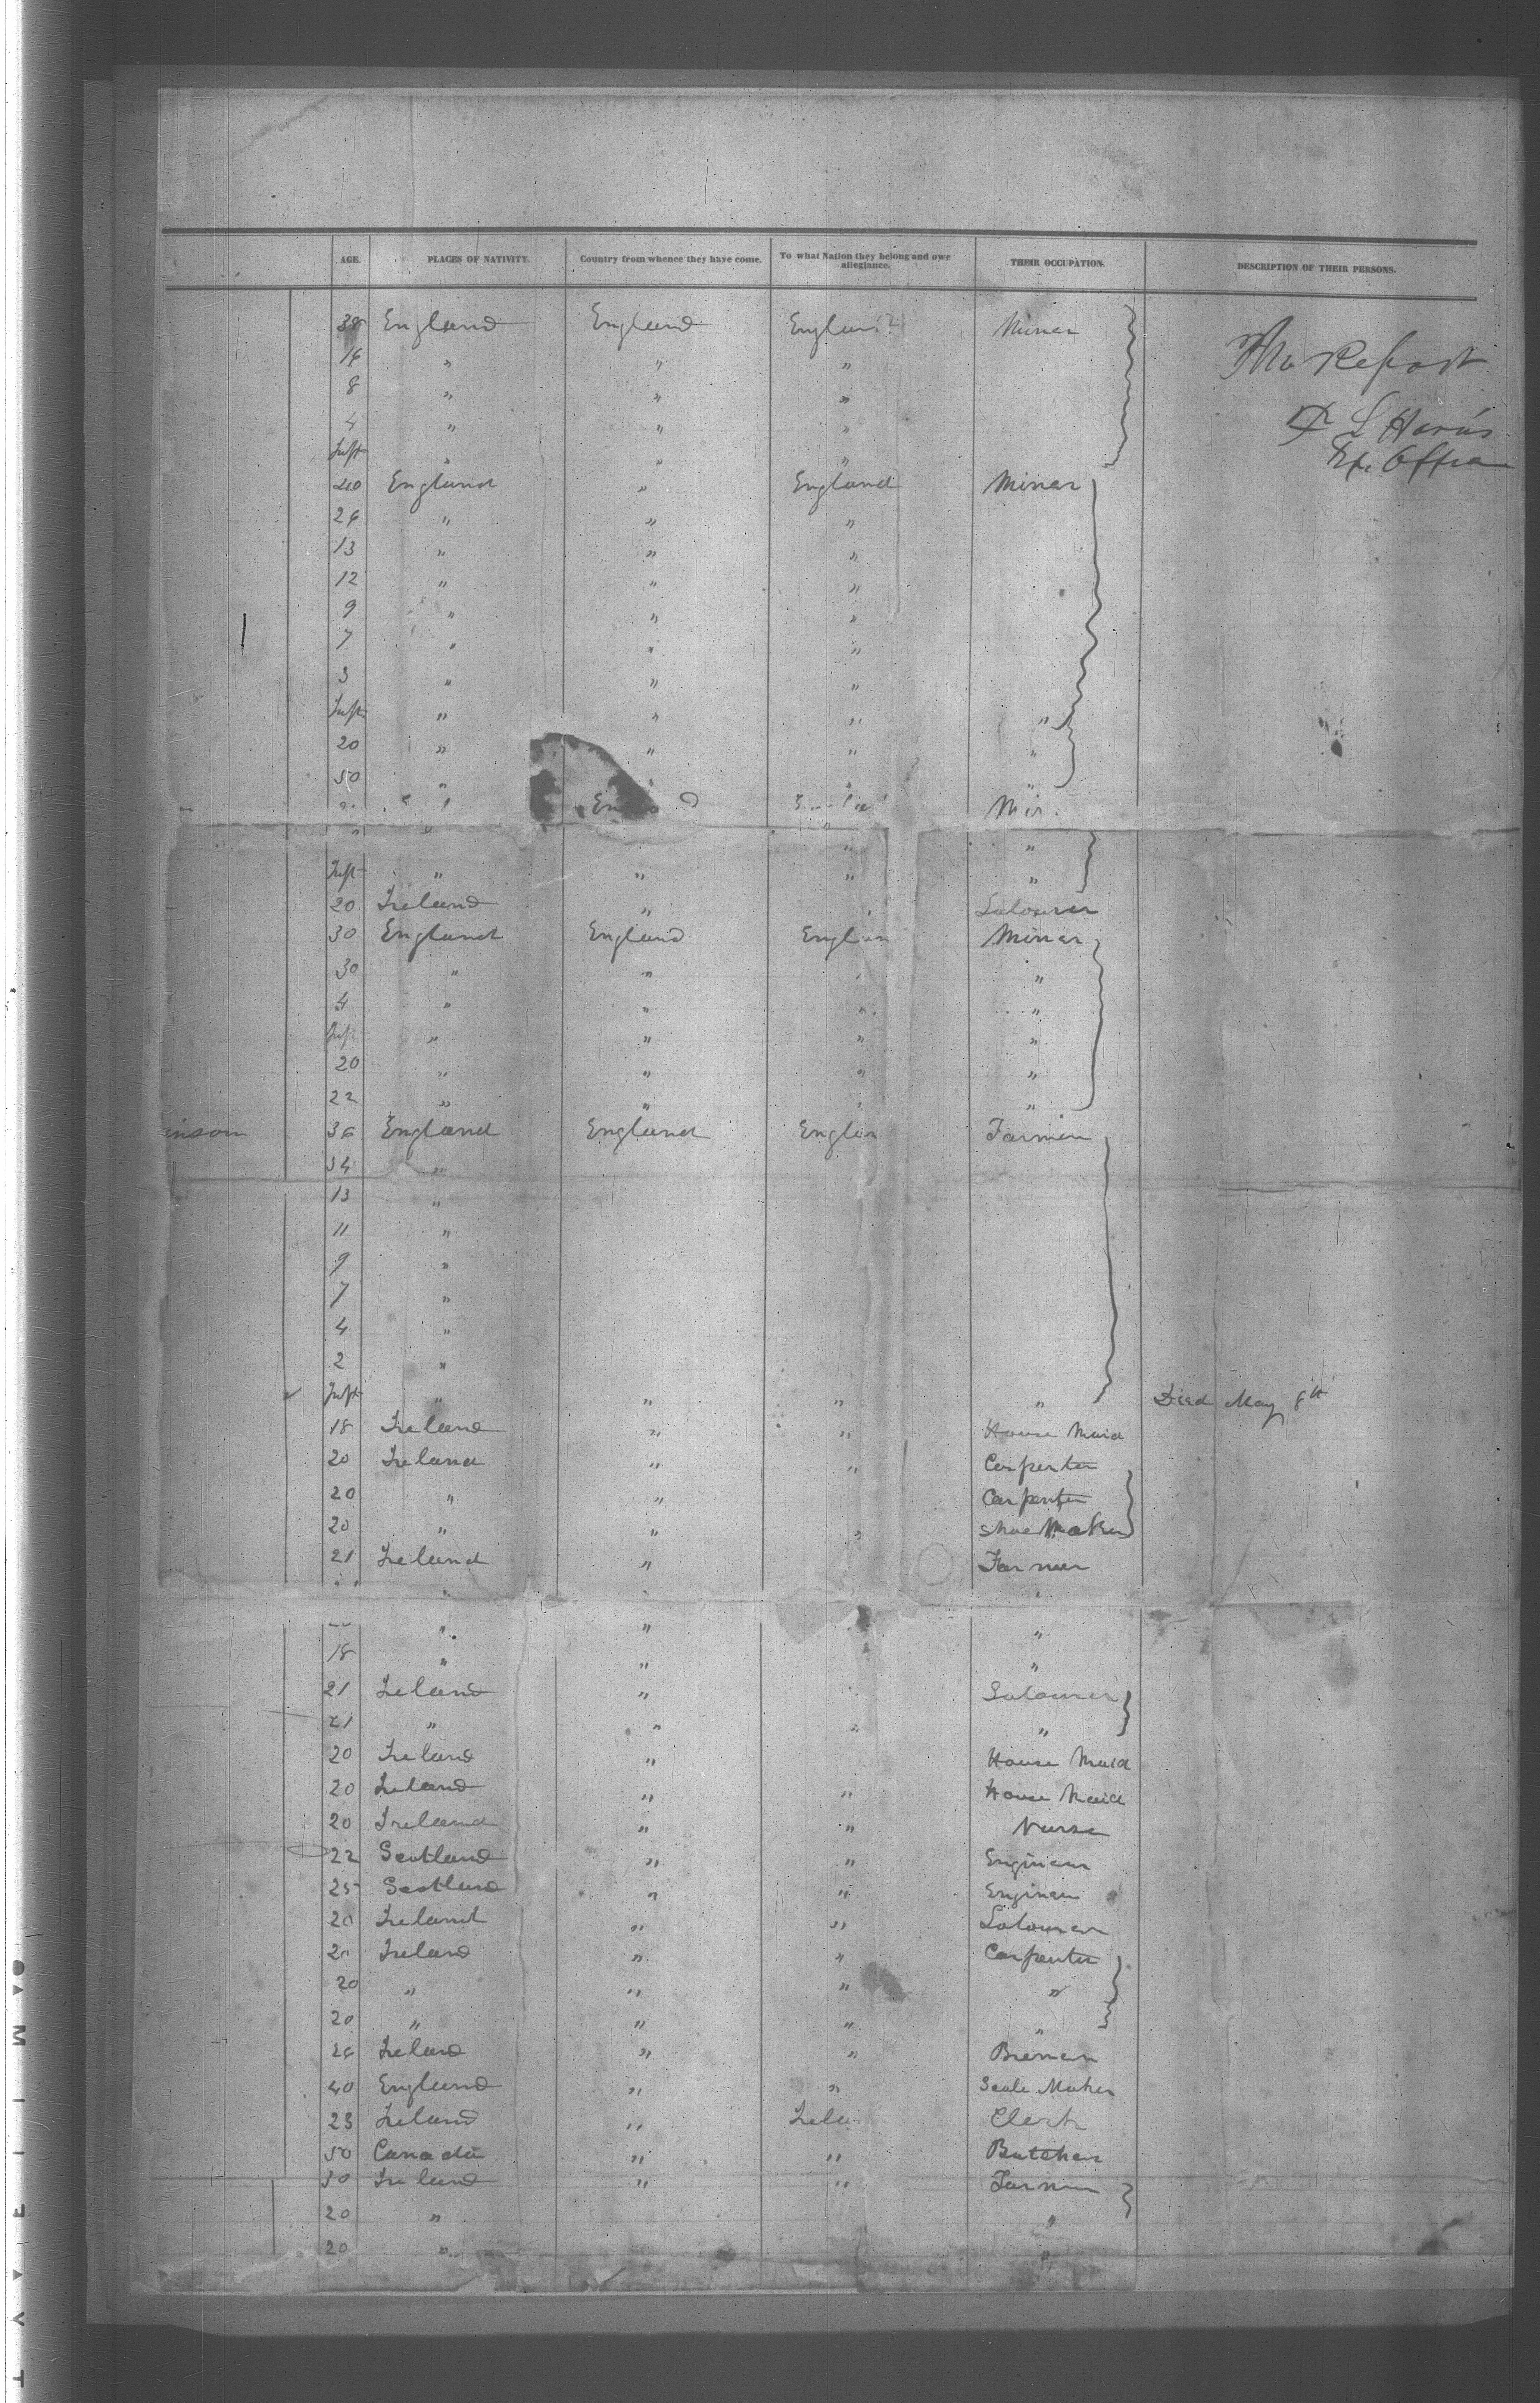 AGE. PLACES OF NATIVITY. Country from whence they have come. To what Nation they belong and owe allegiance. THEIR OCCUPATION. DESCRIPTION OF THEIR PERSONS.
38 England England England Miner
16 " " "
8 " " "
4 " " "
Inft " " "
40 England " England Miner
26 " " "
13 " " "
12 " " "
9 " " "
7 " " "
3 " " "
Inft " " " "
20 " " " "
50 " " " "
" " "
Inft " " " "
20 Ireland " " Labourer
30 England England Miner
30 " " " "
4 " " " "
Inft " " " "
20 " " " "
22 " " " "
inson 36 England England Farmer
34 "
13 "
11 "
9 "
7 "
4 "
2 "
Inft " " " " Died May 8th
18 Ireland " " House Maid
20 Ireland " " Carpenter
20 " " Carpenter
20 " " " Shoe Maker
21 Ireland " Farmer
" " "
" " "
18 " " "
21 Ireland " Labourer
21 " " " "
20 Ireland " House Maid
20 Ireland " " House Maid
20 Ireland " " Nurse
22 Scotland " " Engineer
25 Scotland " " Engineer
20 Ireland " " Labourer
20 Ireland " " Carpenter
20 " " " "
20 " " " "
26 Ireland " "
40 England " " Scale Maker
23 Ireland " Clerk
50 Canada " " Butcher
30 Ireland " " Farmer
20 " "
20 " "